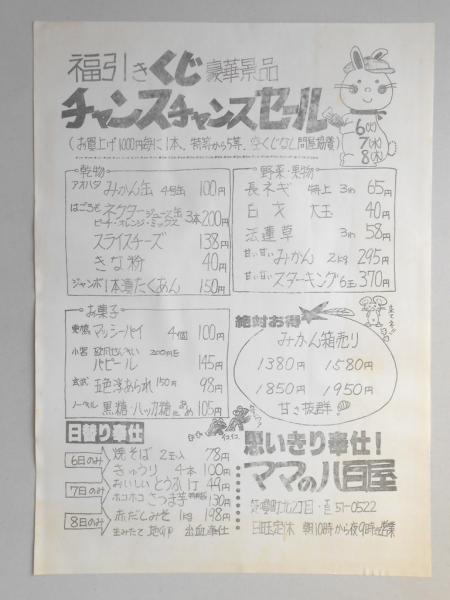 福引きくじ豪華景品
チャンスチャンスセール
(お買上げ1000円毎に1本、特等から5等、空くじなし問屋協賛)
6(火)
7(水)
8(木)
乾物
アオハタ みかん缶 4号缶 100円
はごろも ネクタージュース缶 ピーチ・オレンジ・ミックス 3本200円
スライスチーズ 138円
きな粉 40円
ジャンボ1本漬たくあん 150円
野菜・果物
長ネギ 特上 3わ 65円
白才 大玉 40円
法蓮草 3わ 58円
甘い甘い みかん 2kg 295円
甘い甘い スターキング 6玉 370円
お菓子
東鳩 マッシーパイ 4個 100円
小宮 欧風せんべい 200円を
パピール 145円
五色浮あられ 150円 98円
ノーベル 黒糖・ハッカ糖 あめ 105円
絶対お得
みかん箱売り
1380円 1580円
1850円 1950円
甘さ抜群
日替り奉仕
6日のみ
焼そば 2玉入 78円
きゅうり 4本 100円
7日のみ
おいしい とうふ 1丁 49円
ホコホコ さつま芋 130円
8日のみ
赤だしみそ 1kg 198円
生みたて 地卵 出血奉仕
思いきり奉仕!
ママの八百屋
町北2丁目・☎51-0522
日曜定休 朝10時から夜9時迄営業